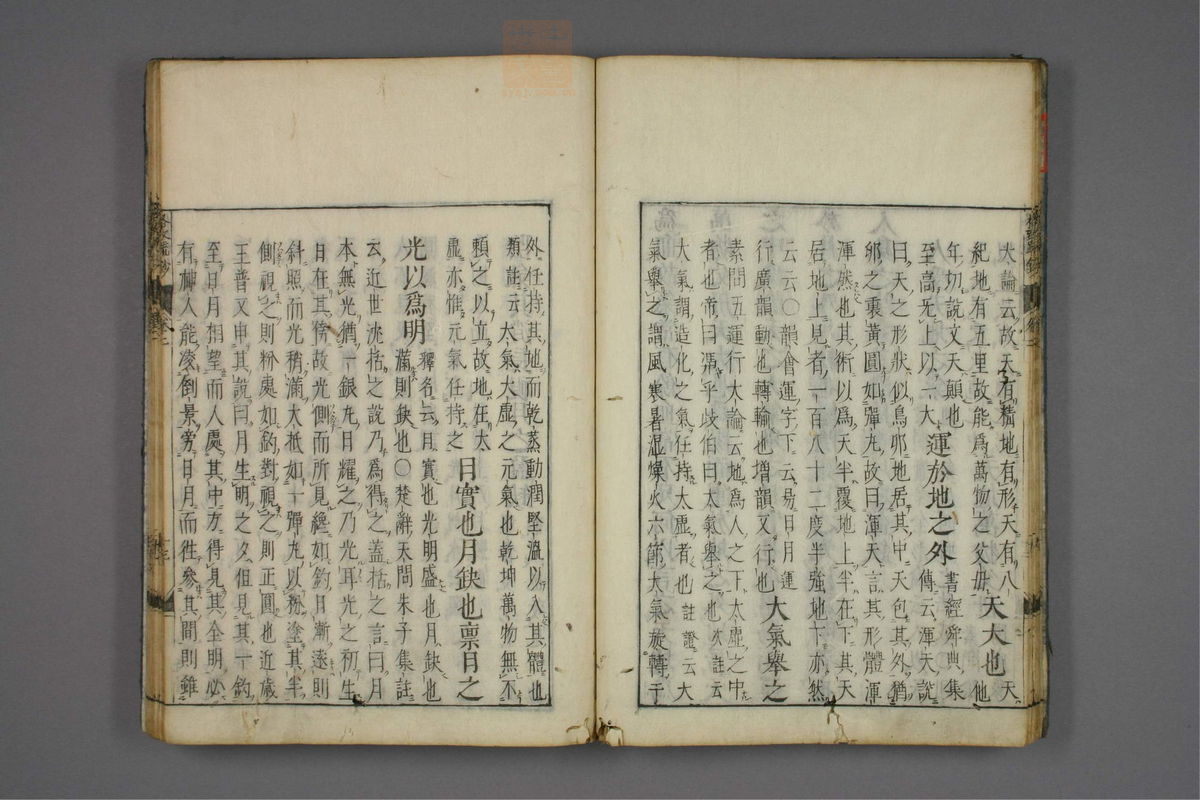 大論云故天有精地有形天有八 天大也 天
紀地有五里故能爲萬物之父母 他
年切說文天顚也
至高无上以一大 運於地之外 書經舜典集
傳云渾天說
曰天之形狀似鳥卵地居其中天包其外猶
卵之裹黃圓如彈丸故曰渾天言其形體渾
渾然也其術以爲天半覆地上半在下其天
居地上見者一百八十二度半強地下亦然
云云〇韻會運字下云易日月運
行廣韻動也轉輸也增韻又行也 大氣舉之
素問五運行大論云地爲人之下太虛之中
者也帝曰馮乎歧伯曰大氣舉之也次註云
大氣謂造化之氣任持太虛者也註證云大
氣舉之謂風寒暑湿燥火六節大氣旋轉于
外任持其地而乾蒸動潤堅溫以入其體也
類註云大氣大虛之元氣也乾坤萬物無不
賴之以立故地在太
虛亦惟元氣任持之 日實也月缺也稟日之
光以爲明 釋名云日實也光明盛也月缺也
滿則缺也〇楚辭天問朱子集註
云近世沈括之說乃爲得之蓋括之言曰月
本無光猶一銀丸日耀之乃光耳光之初生
日在其傍故光側而所見纔如鈎日漸遠則
斜照而光稍滿大抵如一彈丸以粉塗其半
側視之則粉處如鈎對視之則正圓也近歲
王普又申其說曰月生明之夕但見其一鈎
至日月相望而人處其中方得見其全明必
有神人能凌倒景旁日月而往參其間則雖